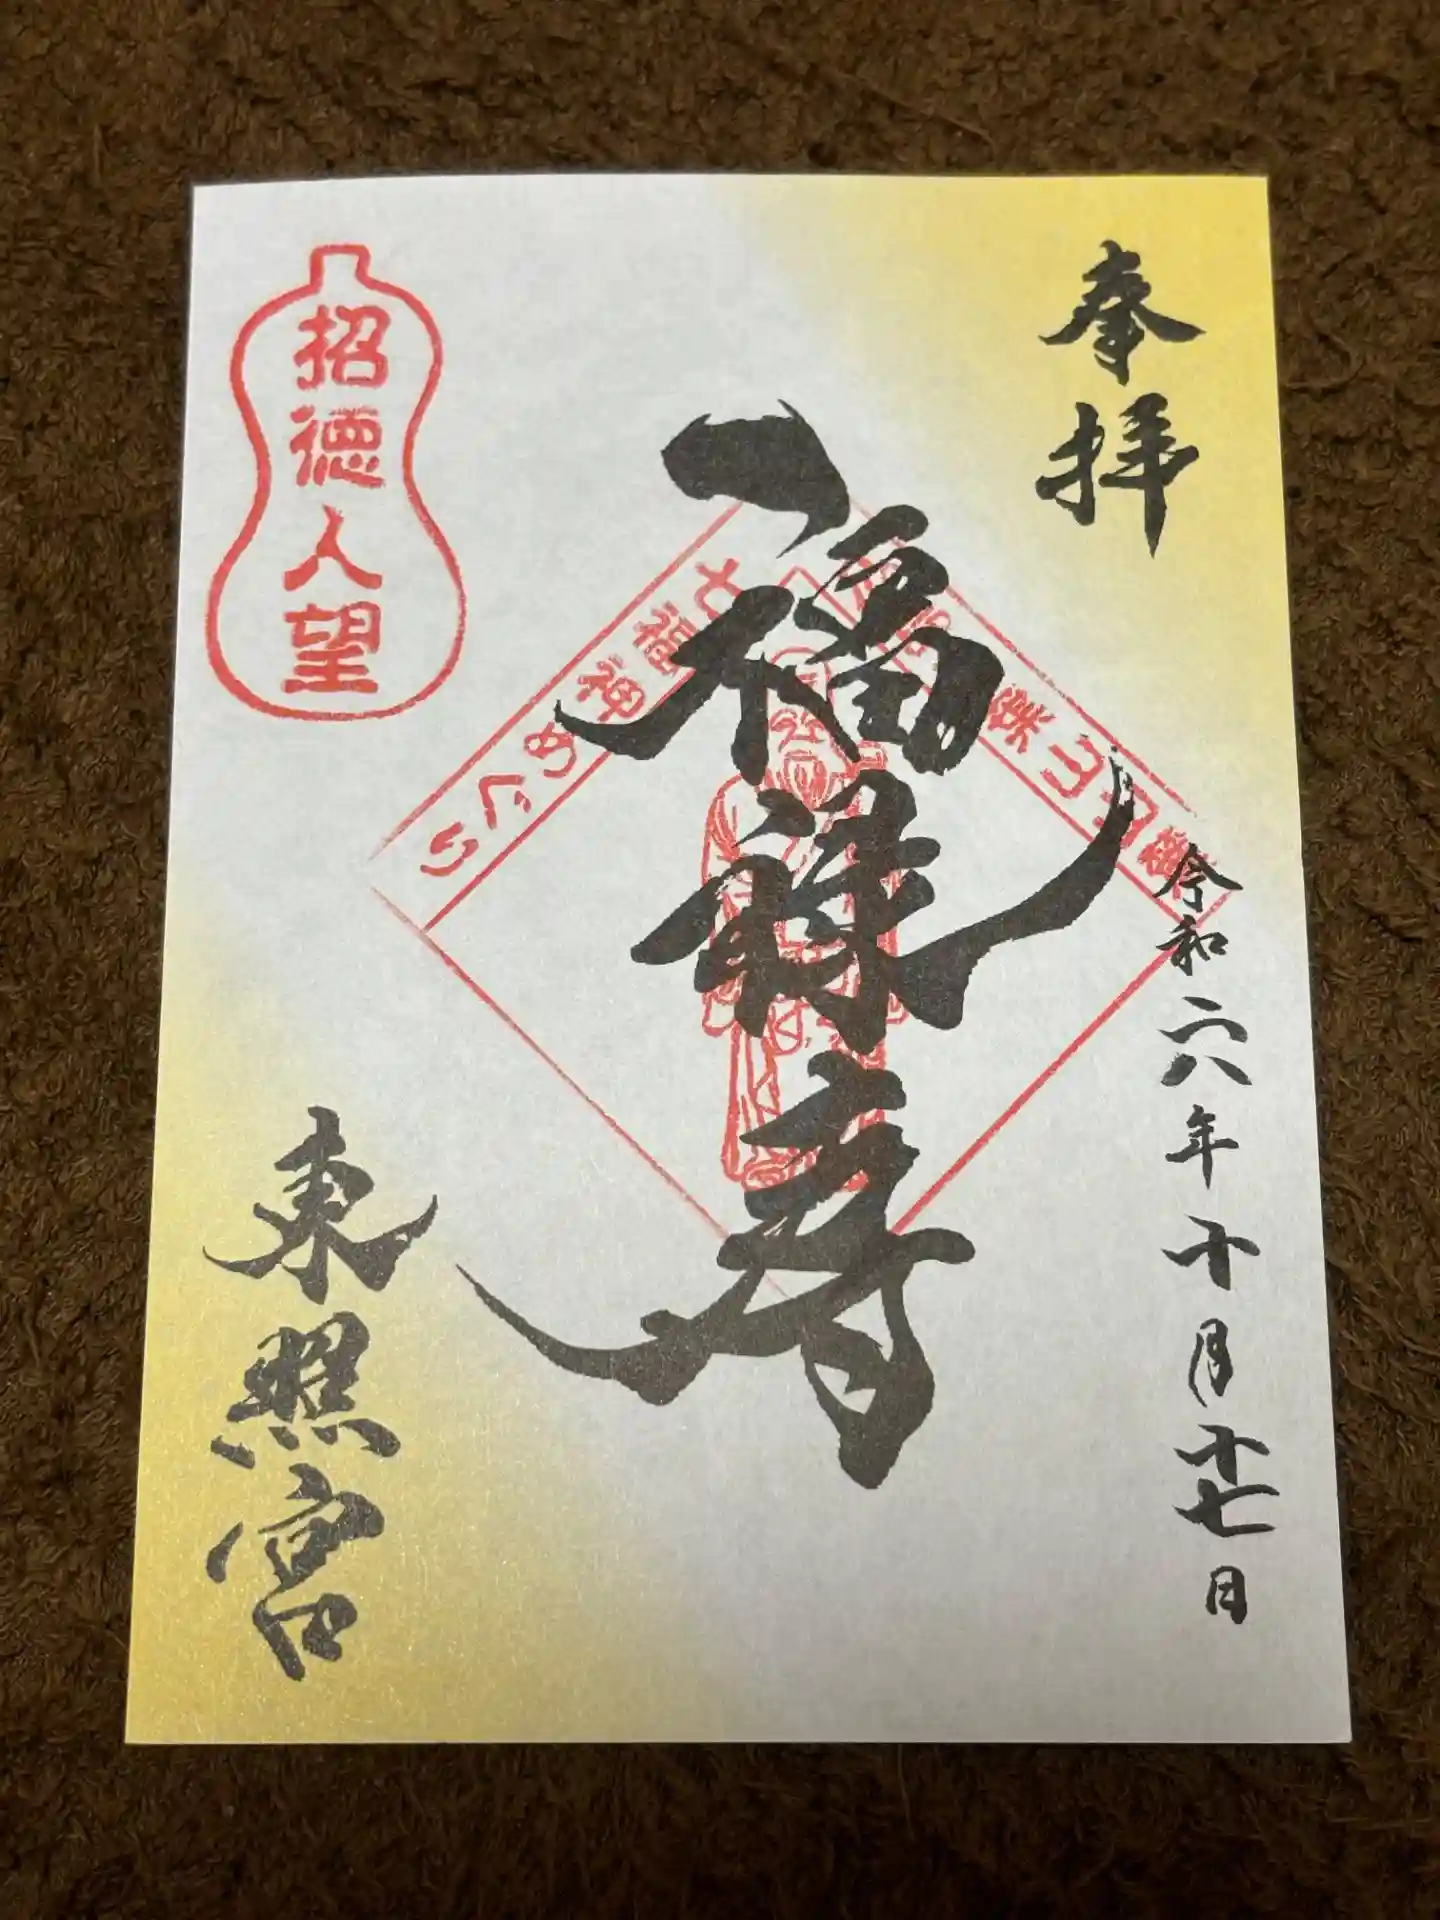 奉拝
福禄寿
令和六年十月十七日
東照宮
招徳人望
七福神めぐり